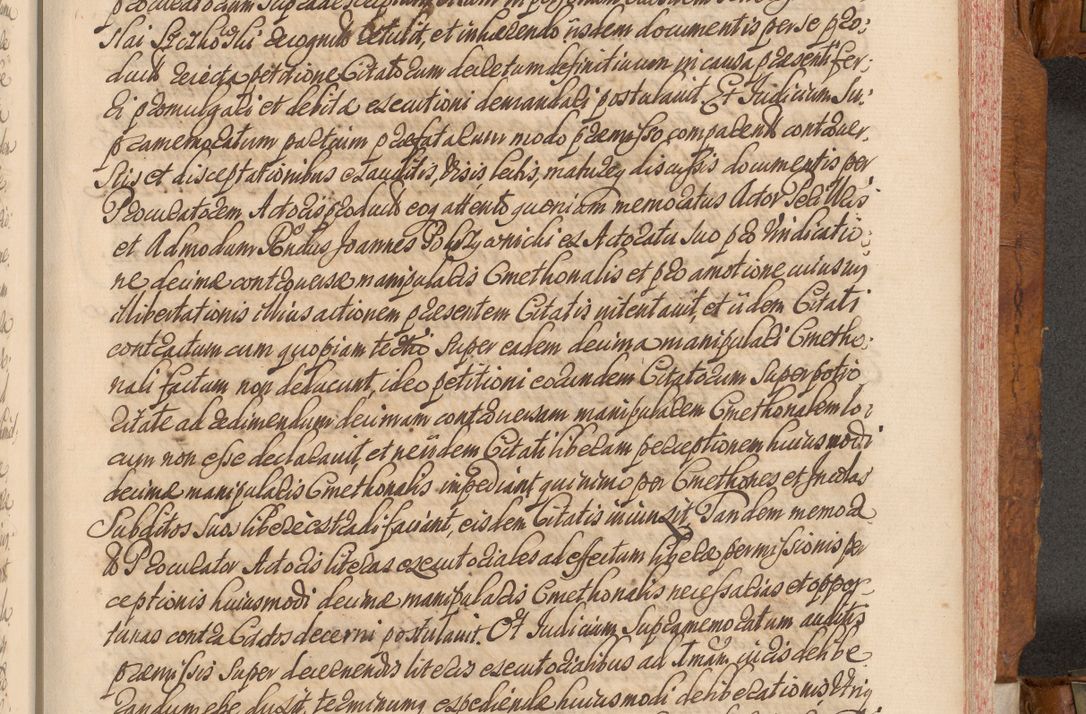 Slai Szczkowski recognit et tulit, et inhærendo iisdem documentis per se pro:
ducti reiecta petitione Citatorum decretum definitivum in causa præsenti fer:
ri promulgari et debitæ executioni demandari postulavit. Et Judicium Su:
pramemoratum partium præfatarum modo præmisso comparent. controver:
siis et disceptationibus exauditis, visis, lectis, matureq discussis documentis per
Procuratorem Actoris productis eoq attento quoniam memoratus Actor
et Admodum Rndus Joannes ex Actoratu suo pro vindicatio:
ne decimæ controversæ manipularis Cmethonalis et pro amotione cuiusvis
illibertationis illius actionem præsentem Citatis intentavit, et iidem Citati
contractum cum quopiam super eadem decima manipulari Cmetho:
nali factum non deducunt, ideo petitioni eorundem Citatorum super potio
ritate ad redimendum decimam controversam manipularem Cmethonalem lo:
cum non esse declaravit, et ne iidem Citati liberam perceptionem huiusmodi
decimæ manipularis Cmethonalis impediant quinimo per Cmethones et Incolas
Subditos suos libere extradi faciant, eisdem Citatis iniunxit. Tandem memora
t9 Procurator Actoris literas executoriales ad effectum liberæ permissionis per
ceptionis huiusmodi decimæ manipularis Cmethonalis necessarias et oppor-
tunas contra Citatos decerni postulavit. Et Judicium Supramemoratum auditis
præmissis super decernendis literis executorialibus ad Imam iuris delibe
randum esse duxit, terminum expediendæ huiusmodi deliberationis